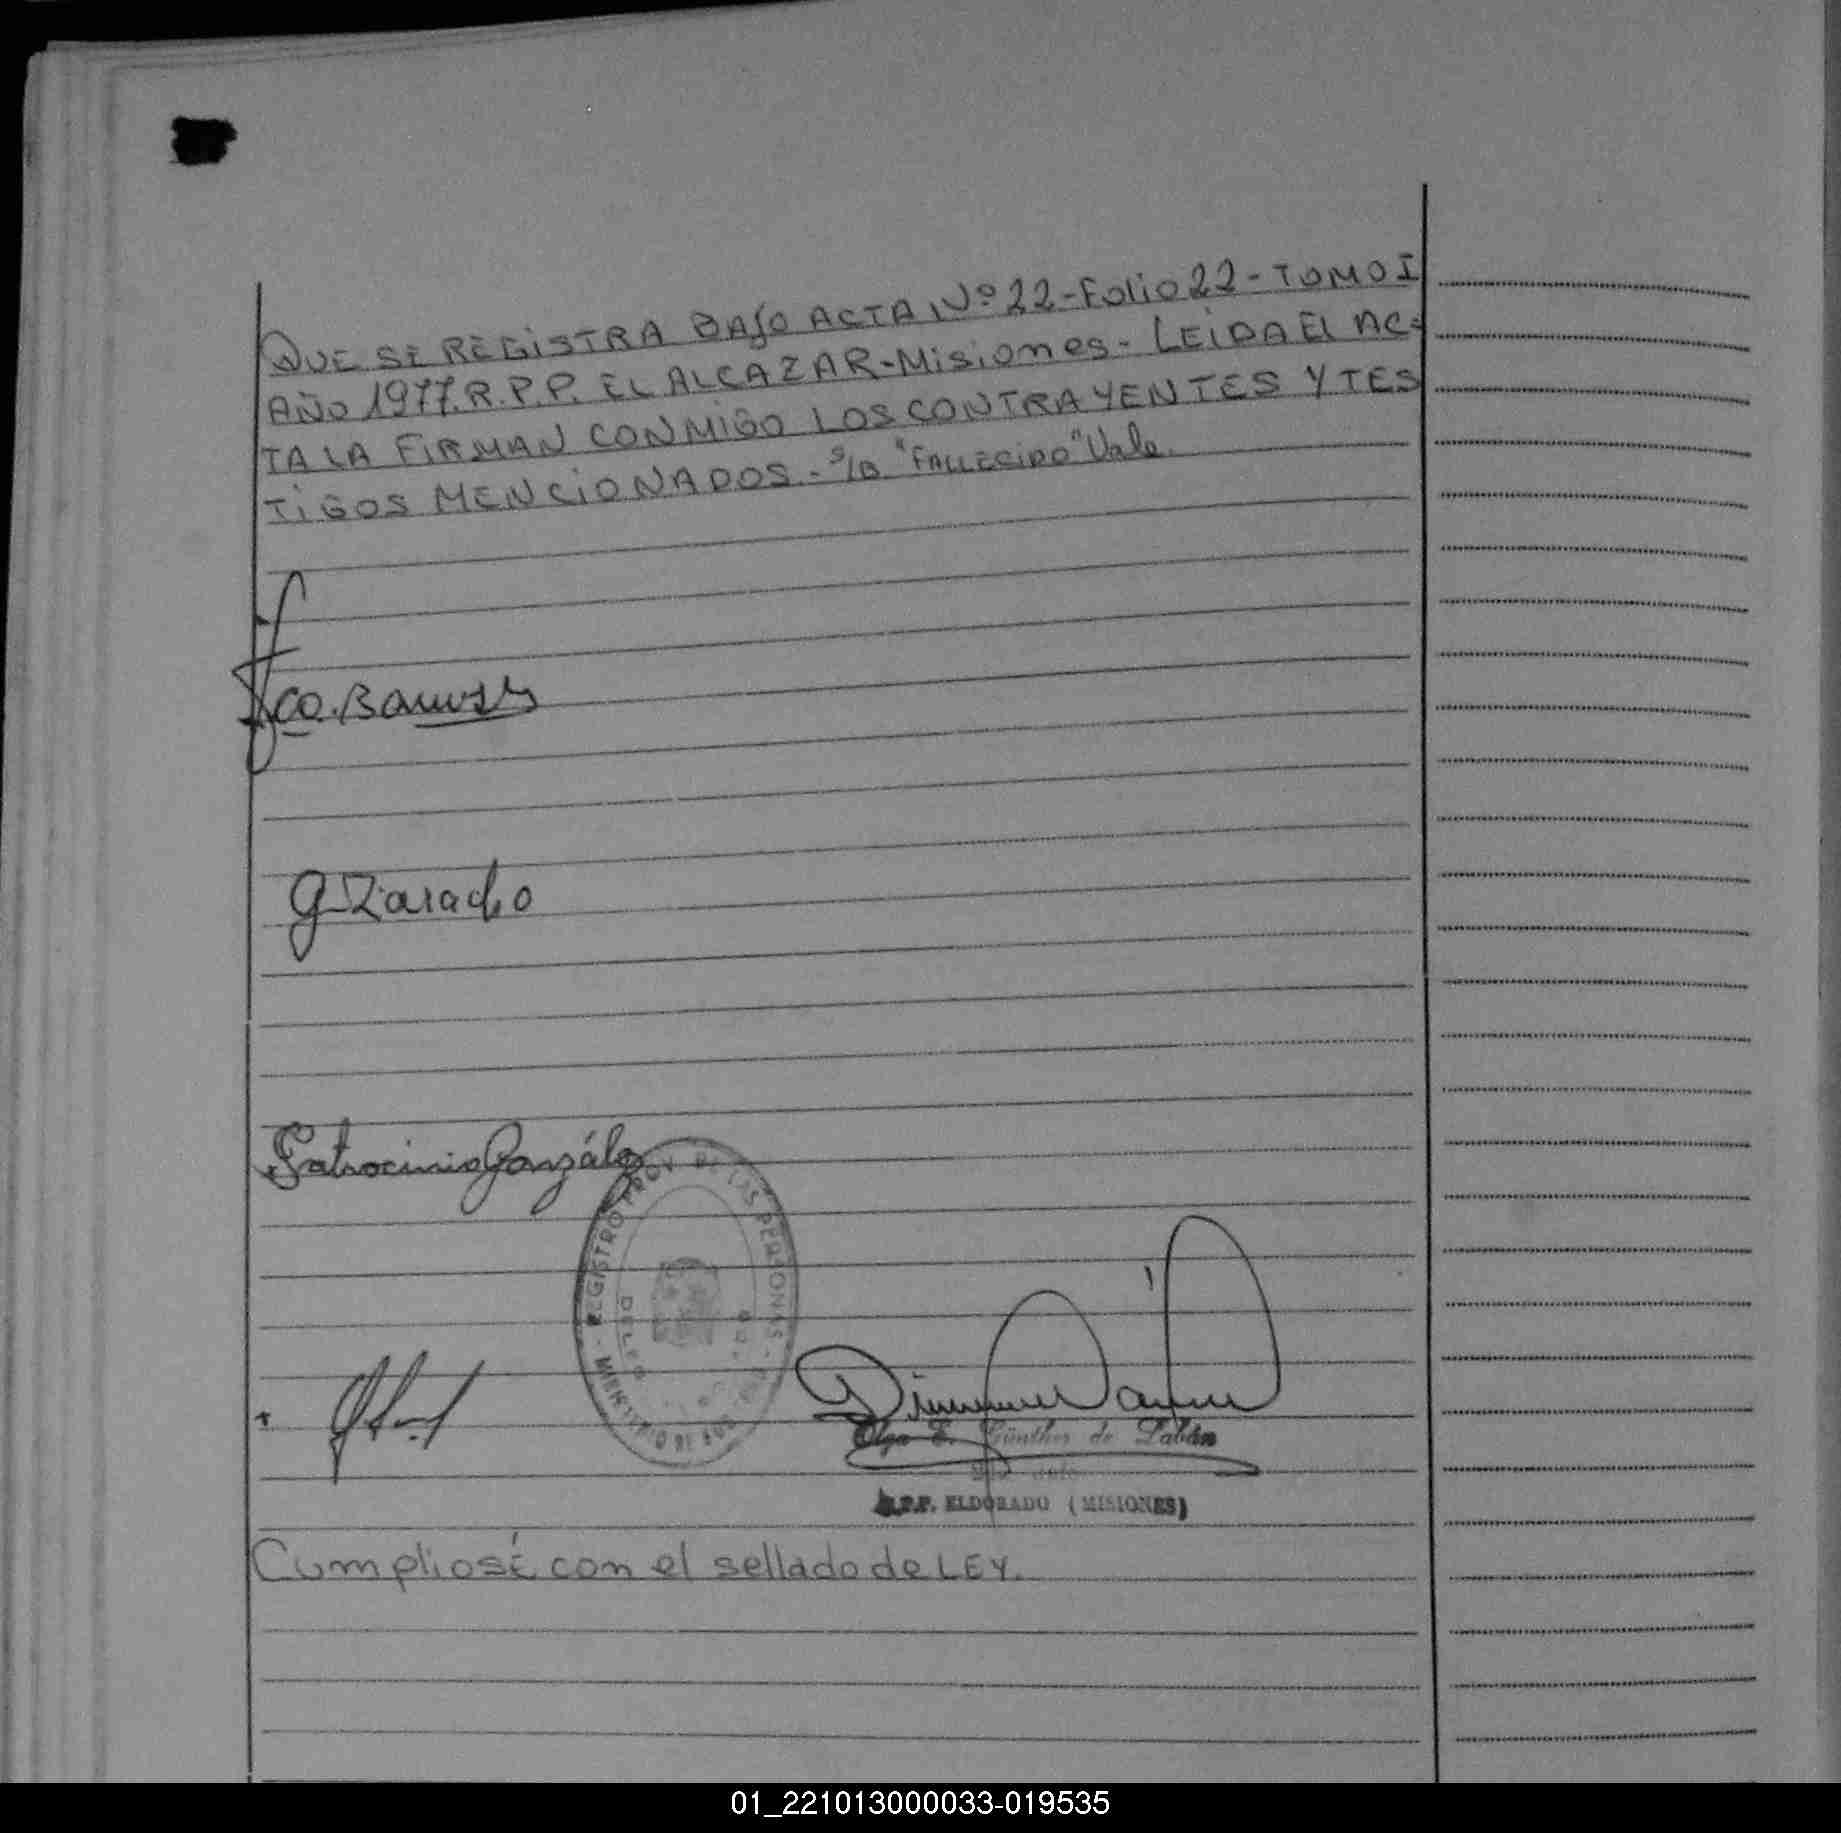 QUE SE REGISTRA BAJO ACTA Nº 22-Folio 22-TOMO I
AÑO 1977. R.P.P. EL ALCAZAR-Misiones- LEIDA EL AC=
TA LA FIRMAN CONMIGO LOS CONTRAYENTES Y TES
TIGOS MENCIONADOS.- S/B "FALLECIDO" Vale.
Fco.
G Zaracho
Patrocinio González
REGISTRO PROV. DE LAS PERSONAS
MINISTERIO DE
Olga E. Günther de Labán
R.P.P. ELDORADO (MISIONES)
Cumpliosé con el sellado de LEY.
01_221013000033-019535